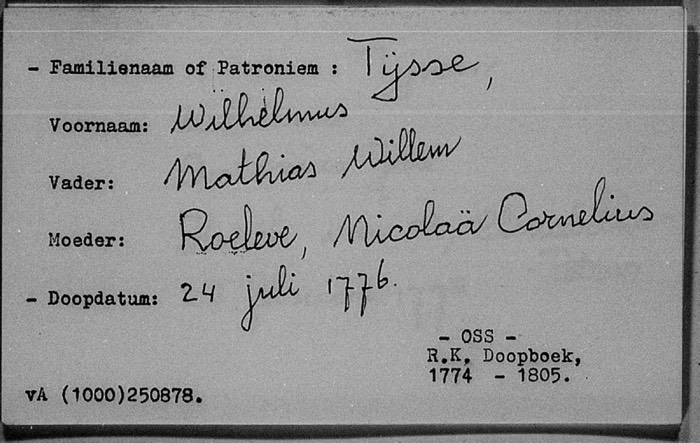 - Familienaam of Patroniem : Tÿsse,
Voornaam: Wilhelmus
Vader: Mathias Willem
Moeder: Roeleve, Nicolaä Cornelius
- Doopdatum: 24 juli 1776.
- OSS -
R.K. Doopboek,
1774 - 1805.
vA (1000)250878.